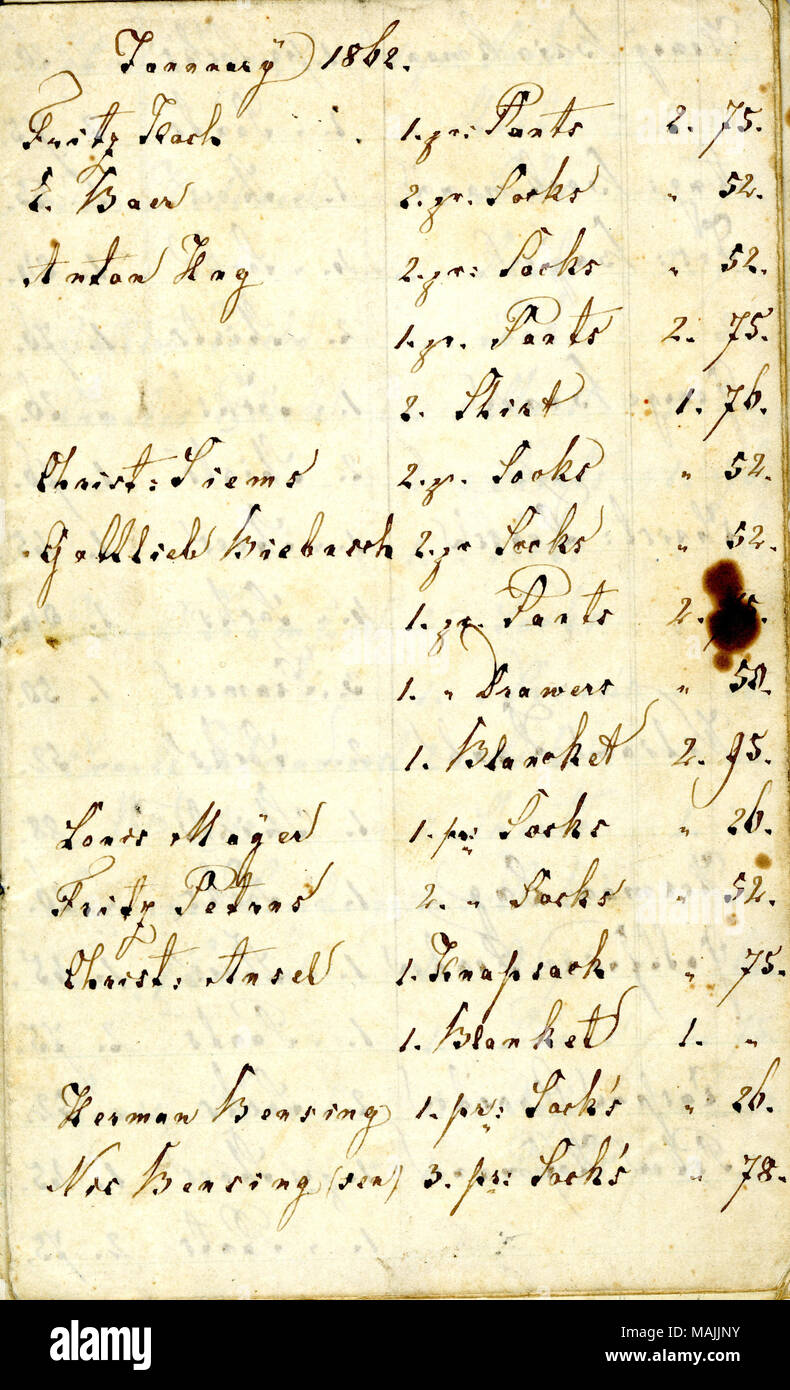 January 1862.
Fritz Koch 1. pr: Pants 2. 75.
E. Baer 2. pr. Socks " 52.
Anton Hug 2. pr: Socks " 52.
1. pr. Pants 2. 75.
2. Shirt 1. 76.
Christ: Siems 2. pr. Socks " 52.
Gottlieb Biebusch 2. pr Socks " 52.
1. pr. Pants 2.
1. " Drawers " 50.
1. Blancket 2. 95.
Louis Mayer 1. pr: Socks " 26.
Fritz Peters 2. " Socks " 52.
Christ: Ansel 1. Knapsack " 75.
1. Blanket 1. "
Herman Bensing 1. pr: Sock's " 26.
Nic Bensing (sen) 3. pr: Sock's " 78.
alamy
Image ID: MAJJNY
www.alamy.com